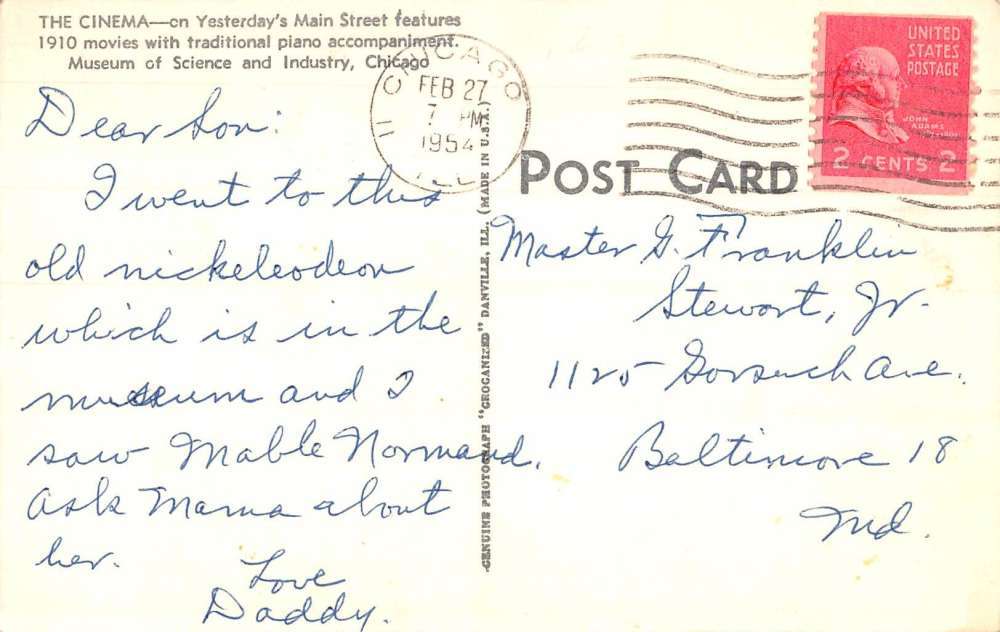 THE CINEMA—on Yesterday's Main Street features
1910 movies with traditional piano accompaniment.
Museum of Science and Industry, Chicago
CHICAGO
FEB 27
7 PM
1954
ILL.
11
UNITED
STATES
POSTAGE
JOHN
ADAMS
2 CENTS 2
POST CARD
Dear Son:
I went to this
old nickeleodeon
which is in the
museum and I
saw Mable Normand.
Ask Mama about
her.
Love
Daddy.
GENUINE PHOTOGRAPH "GROGANIZED" DANVILLE, ILL. (MADE IN U.S.A.)
Master G. Franklin
Stewart, Jr.
1125 Gorsuch Ave.
Baltimore 18
Md.